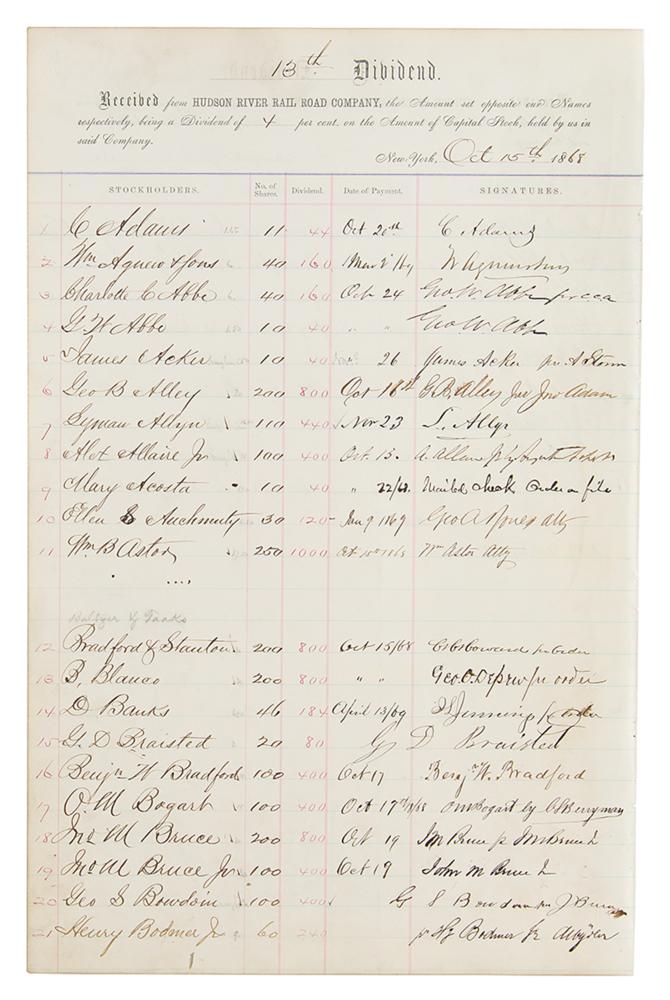 13th Dividend.
Received from HUDSON RIVER RAIL ROAD COMPANY, the Amount set opposite our Names
respectively, being a Dividend of 4 per cent. on the Amount of Capital Stock, held by us in
said Company.
New-York, Oct 15th 1868
STOCKHOLDERS. No. of Shares. Dividend. Date of Payment. SIGNATURES.
1 C Adams 11 44 Oct 20th C. Adams
2 Wm Agnew & Sons 40 160 Mar 2/69
3 Charlotte C Abbe 40 160 Oct 24 Geo W. Abbe for CCA
4 G W Abbe 10 40 " " Geo W. Abbe
5 James Acker 10 40 " 26 James Acker pr A Storm
6 Geo B Alley 200 800 Oct 16th G.B. Alley Jno Adam
7 Lyman Allyn 110 440 Nov 23 L. Allyn
8 Alex Allaire Jr 100 400 Oct. 15.
9 Mary Acosta 10 40 " 22/68. Mailed check Order on file
10 Ellen S Auchmuty 30 120 Jan 9 1869 Geo A Jones atty
11 Wm B Astor 250 1000 Wm Astor Atty
12 Bradford & Stanton 200 800 Oct 15/68 order
13 B, Blanco 200 800 " " Geo. O. Depew pr order
14 D Banks 46 184 April 13/69 Jennings pr order
15 G. D Braisted 20 80 G D Braisted
16 Benjn W Bradford 100 400 Oct 17 Benjn W. Bradford
17 O. M Bogart 100 400 Oct 17th/68 OM Bogart by CS Berryman
18 Jno M Bruce 200 800 Oct 19 JM Bruce pr JM Bruce Jr
19 Jno M Bruce Jr 100 400 Oct 19 John M Bruce Jr
20 Geo S Bowdoin 100 400 G S Bowdoin
21 Henry Bodmer Jr 60 240 Hy Bodmer Jr